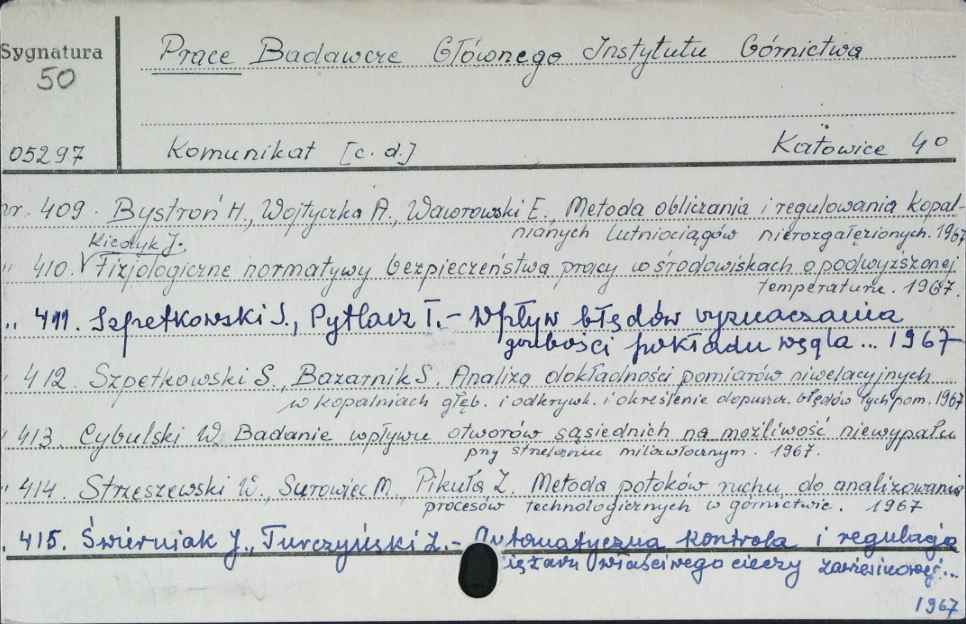 Sygnatura
50
Prace Badawcze Głównego Instytutu Górnictwa
05297
Komunikat [c. d.]
Katowice 40
nr. 409. Bystroń H., Wojtyczka A., Waworowski E., Metoda obliczania i regulowania kopal-
nianych lutniociągów nierozgałęzionych. 1967
Kiedyk J.
" 410. Fizjologiczne normatywy bezpieczeństwa pracy w środowiskach o podwyższonej
temperaturze. 1967.
" 411. Szpetkowski S., Pytlarz T. - Wpływ błędów wyznaczania
grubości pokładu węgla ... 1967
" 412. Szpetkowski S., Bazarnik S. Analiza dokładności pomiarów niwelacyjnych
w kopalniach głęb. i odkrywk. i określenie dopuszcz. błędów tych pom. 1967
" 413. Cybulski W. Badanie wpływu otworów sąsiednich na możliwość niewypału
przy strzelaniu milizwłocznym. 1967.
" 414. Strzeszewski W., Surowiec M., Pikuła Z. Metoda potoków ruchu do analizowania
procesów technologicznych w górnictwie. 1967
415. Świerniak J., Turczyński Z. - Automatyczna kontrola i regulacja
ciężaru właściwego cieczy zawiesinowej...
1967